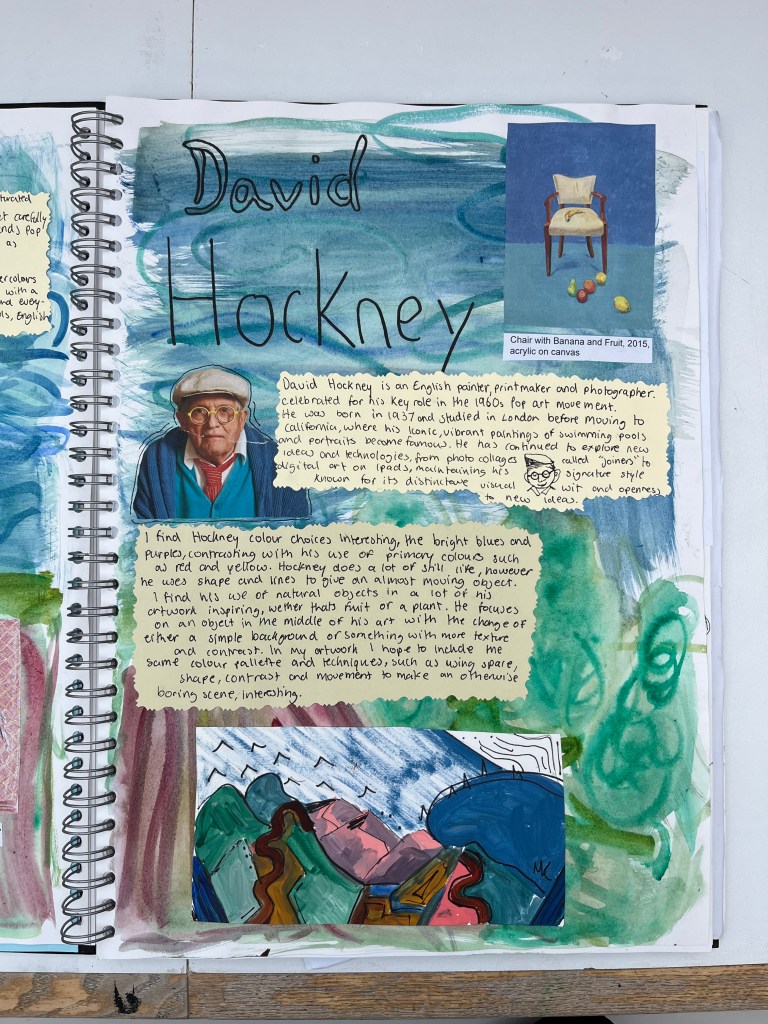 turated
et carefully
ands pop
as
ercolours
with a
and every-
ols, English
David
Hockney
Chair with Banana and Fruit, 2015,
acrylic on canvas
David Hockney is an English painter, printmaker and photographer.
celebrated for his key role in the 1960s pop art movement.
He was born in 1937 and studied in London before moving to
California, where his iconic, vibrant paintings of swimming pools
and portraits became famous. He has continued to explore new
ideas and technologies, from photo collages called "joiners" to
digital art on Ipads, maintaining his signature style
known for its distinctive visual wit and openness
to new ideas.
I find Hockney colour choices interesting, the bright blues and
purples, contrasting with his use of primary colours such
as red and yellow. Hockney does a lot of still life, however
he uses shape and lines to give an almost moving object.
I find his use of natural objects in a lot of his
artwork inspiring, wether thats fruit or a plant. He focuses
on an object in the middle of his art with the change of
either a simple background or something with more texture
and contrast. In my artwork I hope to include the
same colour pallette and techniques, such as using spare,
shape, contrast and movement to make an otherwise
boring scene, interesting.